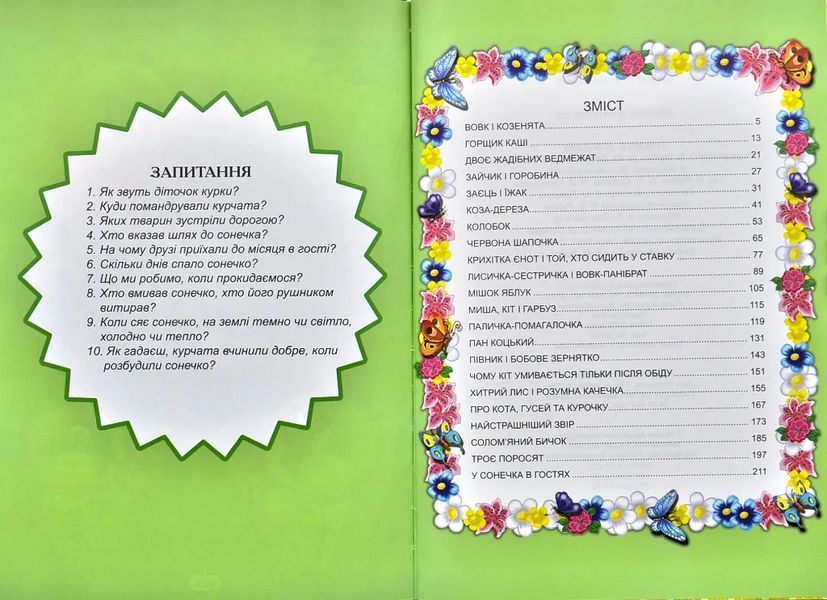 ЗАПИТАННЯ
1. Як звуть діточок курки?
2. Куди помандрували курчата?
3. Яких тварин зустріли дорогою?
4. Хто вказав шлях до сонечка?
5. На чому друзі приїхали до місяця в гості?
6. Скільки днів спало сонечко?
7. Що ми робимо, коли прокидаємося?
8. Хто вмивав сонечко, хто його рушником
витирав?
9. Коли сяє сонечко, на землі темно чи світло,
холодно чи тепло?
10. Як гадаєш, курчата вчинили добре, коли
розбудили сонечко?
ЗМІСТ
ВОВК І КОЗЕНЯТА 5
ГОРЩИК КАШІ 13
ДВОЄ ЖАДІБНИХ ВЕДМЕЖАТ 21
ЗАЙЧИК І ГОРОБИНА 27
ЗАЄЦЬ І ЇЖАК 31
КОЗА-ДЕРЕЗА 41
КОЛОБОК 53
ЧЕРВОНА ШАПОЧКА 65
КРИХІТКА ЄНОТ І ТОЙ, ХТО СИДИТЬ У СТАВКУ 77
ЛИСИЧКА-СЕСТРИЧКА І ВОВК-ПАНІБРАТ 89
МІШОК ЯБЛУК 105
МИША, КІТ І ГАРБУЗ 115
ПАЛИЧКА-ПОМАГАЛОЧКА 119
ПАН КОЦЬКИЙ 131
ПІВНИК І БОБОВЕ ЗЕРНЯТКО 143
ЧОМУ КІТ УМИВАЄТЬСЯ ТІЛЬКИ ПІСЛЯ ОБІДУ 151
ХИТРИЙ ЛИС І РОЗУМНА КАЧЕЧКА 155
ПРО КОТА, ГУСЕЙ ТА КУРОЧКУ 167
НАЙСТРАШНІШИЙ ЗВІР 173
СОЛОМ'ЯНИЙ БИЧОК 185
ТРОЄ ПОРОСЯТ 197
У СОНЕЧКА В ГОСТЯХ 211